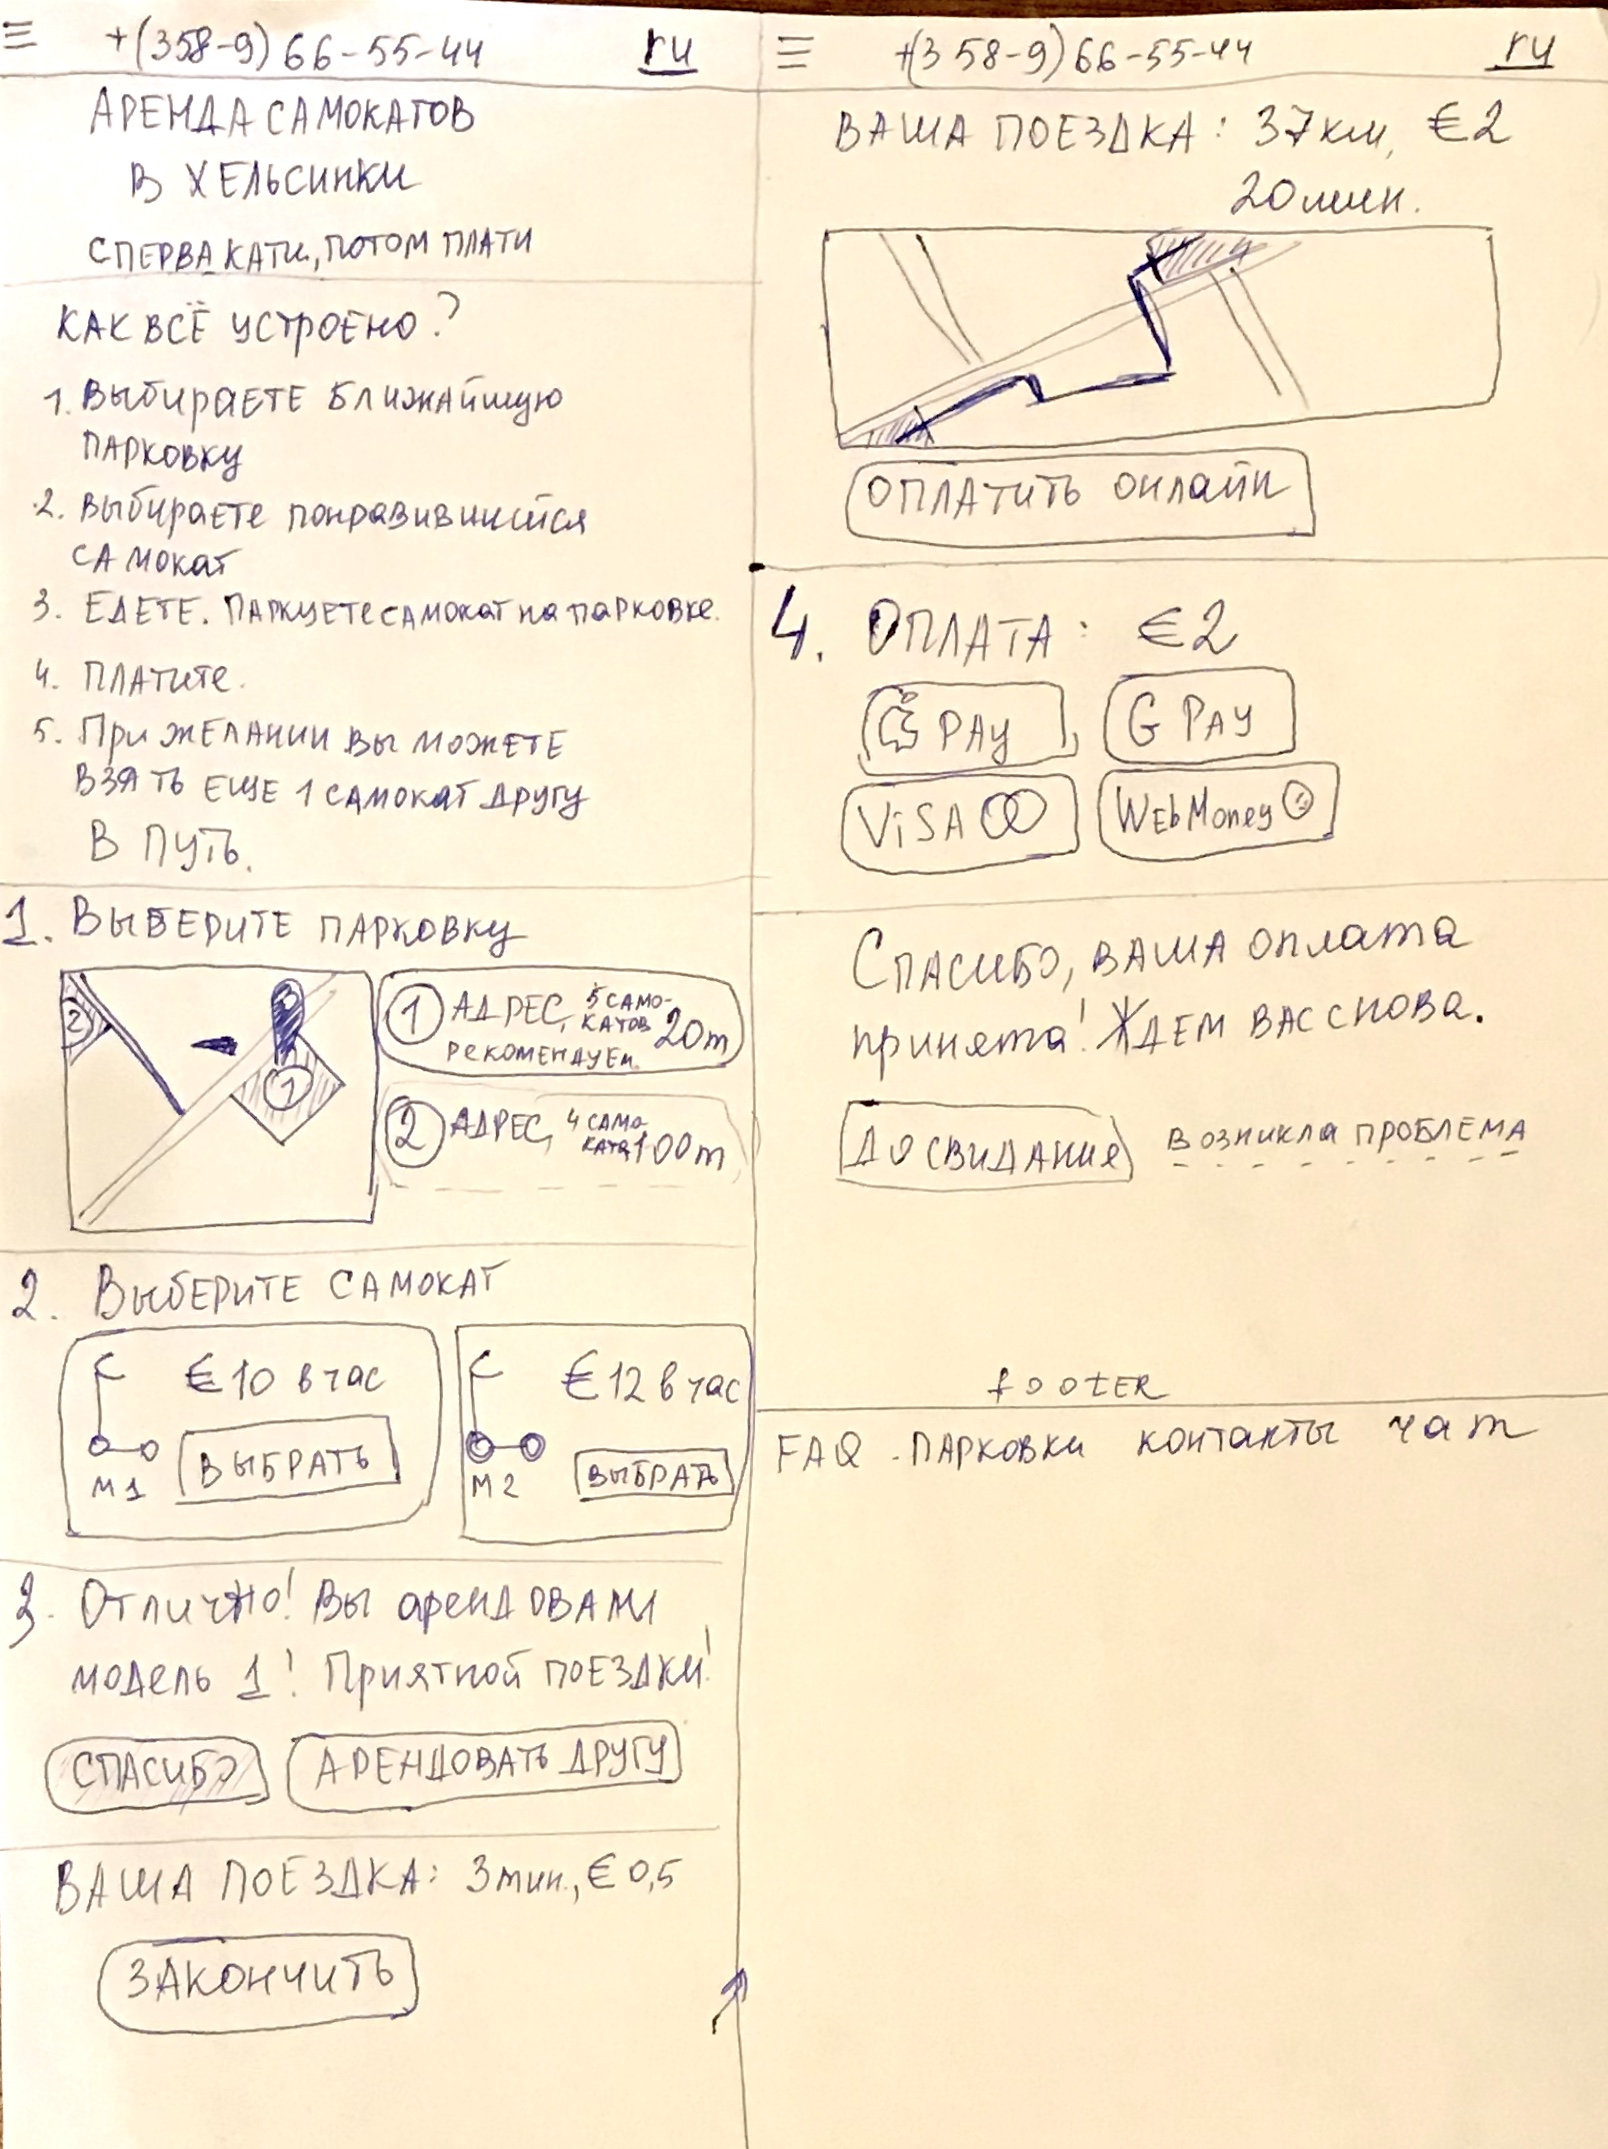 +(358-9) 66-55-44 ru
АРЕНДА САМОКАТОВ
В ХЕЛЬСИНКИ
СПЕРВА КАТИ, ПОТОМ ПЛАТИ
КАК ВСЁ УСТРОЕНО?
1. ВЫБИРАЕТЕ БЛИЖАЙШУЮ
ПАРКОВКУ
2. ВЫБИРАЕТЕ ПОНРАВИВШИЙСЯ
САМОКАТ
3. ЕДЕТЕ. ПАРКУЕТЕ САМОКАТ НА ПАРКОВКЕ.
4. ПЛАТИТЕ.
5. ПРИ ЖЕЛАНИИ ВЫ МОЖЕТЕ
ВЗЯТЬ ЕЩЕ 1 САМОКАТ ДРУГУ
В ПУТЬ.
1. ВЫБЕРИТЕ ПАРКОВКУ
2
1
1 АДРЕС, 5 САМО-
КАТОВ 20m
РЕКОМЕНДУЕМ
2 АДРЕС, 4 САМО-
КАТА 100m
2. ВЫБЕРИТЕ САМОКАТ
€10 в час
ВЫБРАТЬ
М1
€12 в час
ВЫБРАТЬ
М2
3. ОТЛИЧНО! ВЫ АРЕНДОВАЛИ
МОДЕЛЬ 1! ПРИЯТНОЙ ПОЕЗДКИ!
СПАСИБО АРЕНДОВАТЬ ДРУГУ
ВАША ПОЕЗДКА: 3 мин., €0,5
ЗАКОНЧИТЬ
+(358-9) 66-55-44 ru
ВАША ПОЕЗДКА: 37 км, €2
20 мин.
ОПЛАТИТЬ ОНЛАЙН
4. ОПЛАТА: €2
PAY G PAY
ViSA WEbMoney
СПАСИБО, ВАША ОПЛАТА
ПРИНЯТА! ЖДЕМ ВАС СНОВА.
ДО СВИДАНИЯ ВОЗНИКЛА ПРОБЛЕМА
fOOTER
FAQ ПАРКОВКИ КОНТАКТЫ ЧАТ